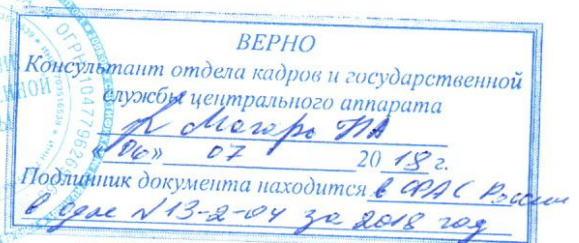 ВЕРНО
Консультант отдела кадров и государственной
службы центрального аппарата
«06» 07 2018 г.
Подлинник документа находится в ФАС России
в деле №13-2-04 за 2018 год